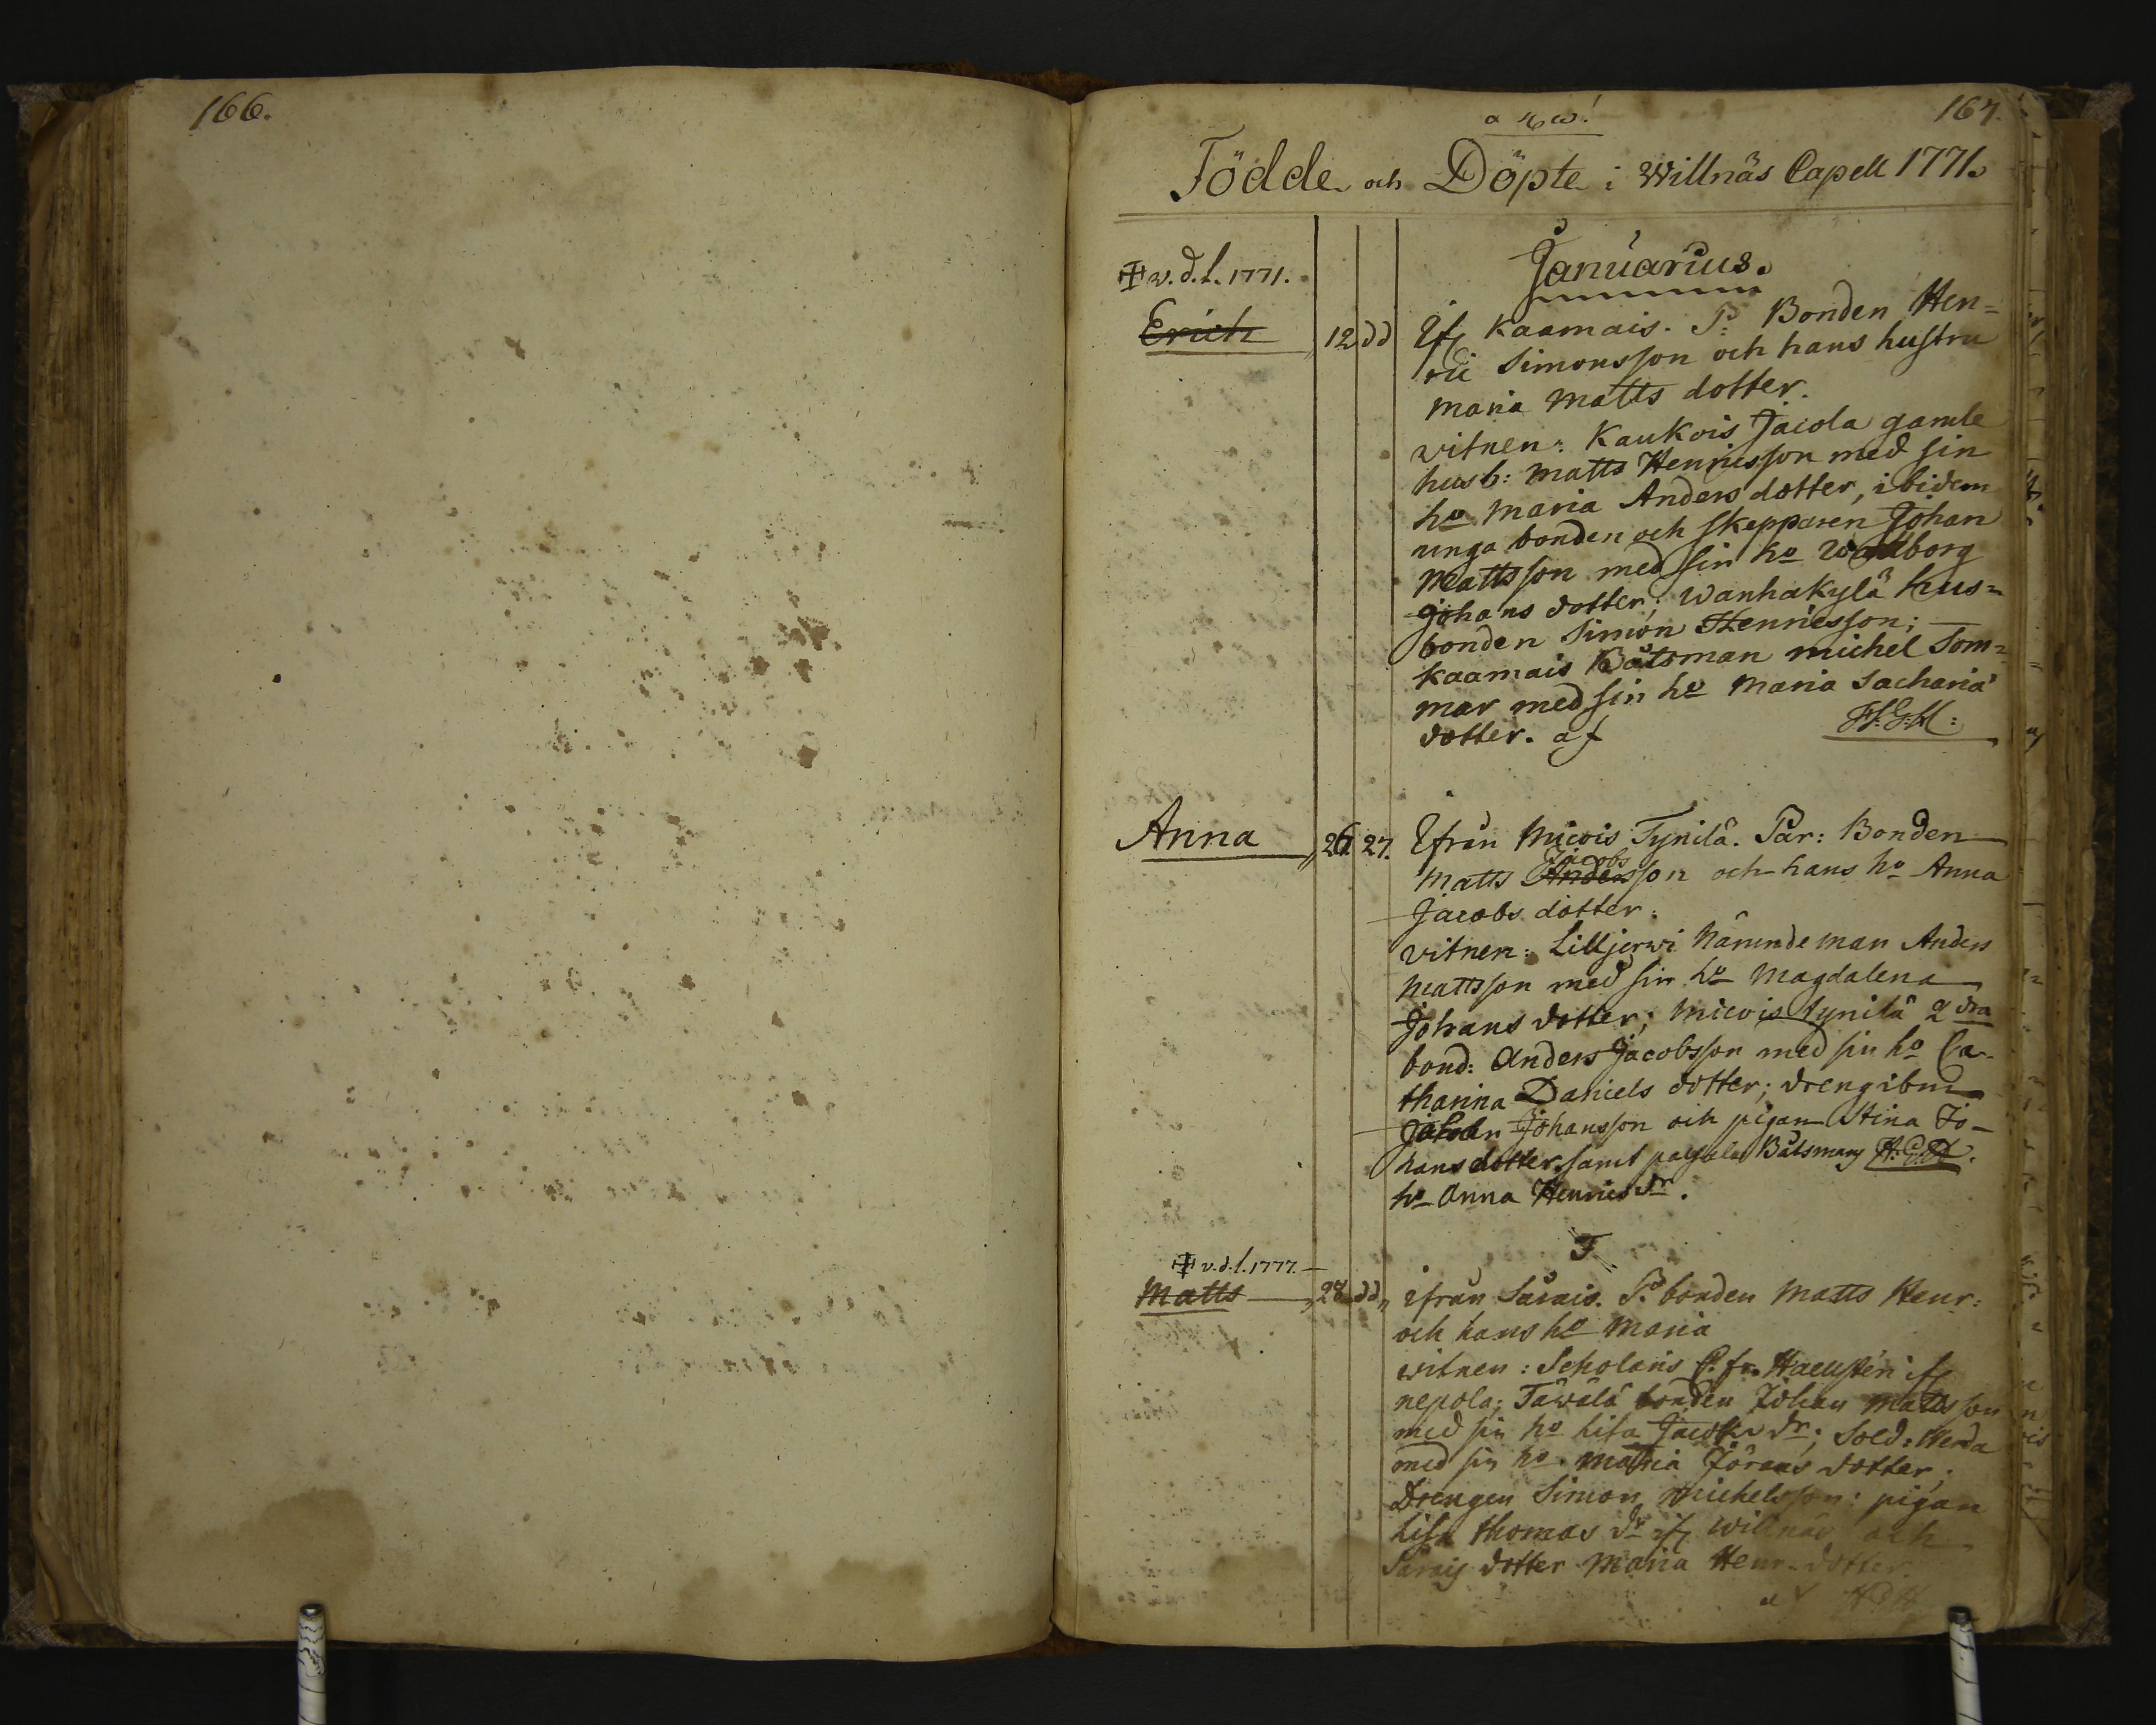 166.
167.
Födde och Döpte i Willnäs Capell 1771.
Januarius.
v. d. l. 1771.
Erich 12 dd if Kaamais. P: Bonden Hen=
ric Simonsson och hans hustru
Maria Matts dotter.
witnen: Kaukois Jacola gamle
husb: Matts Henricsson med sin
ho Maria Anders dotter, ibidem
unga bonden och skepparen Johan
Mattsson med sin ho Wallborg
Johans dotter; Wanhakylä hus=
bonden Simon Henricsson;
Kaamais Båtsman Michel Som=
mar med sin ho Maria Sacharia
dotter. af H:G:H:
Anna 26. 27. ifrån Micois Tynilä. Par: Bonden
Jacobs
Matts Andersson och hans ho Anna
Jacobs dotter.
vitnen: Lilljerwi Nämndeman Anders
Mattsson med sin ho Magdalena
Johans dotter; Micois Tynilä 2 dra
bond: Anders Jacobsson med sin ho Ca-
tharina Daniels dotter; dreng ibm
Johansson och pigan Stina Jo-
hans dotter, samt Båtsmans
ho Anna Henrics dr.
v. d. l. 1777.
Matts 28 dd ifrån Sarais. P. bonden Matts Henr:
och hans ho Maria
witnen: Scholaris Hællsten if
nepola; Täwälä bonden Johan Mattsson
med sin ho Lisa Jacobs dr; Sold:
med sin ho Maria Jörans dotter;
Drengen Simon Michelsson; pigan
Lisa Thomas dr if Willnäs och
Sarais dotter Maria Henr. dotter.